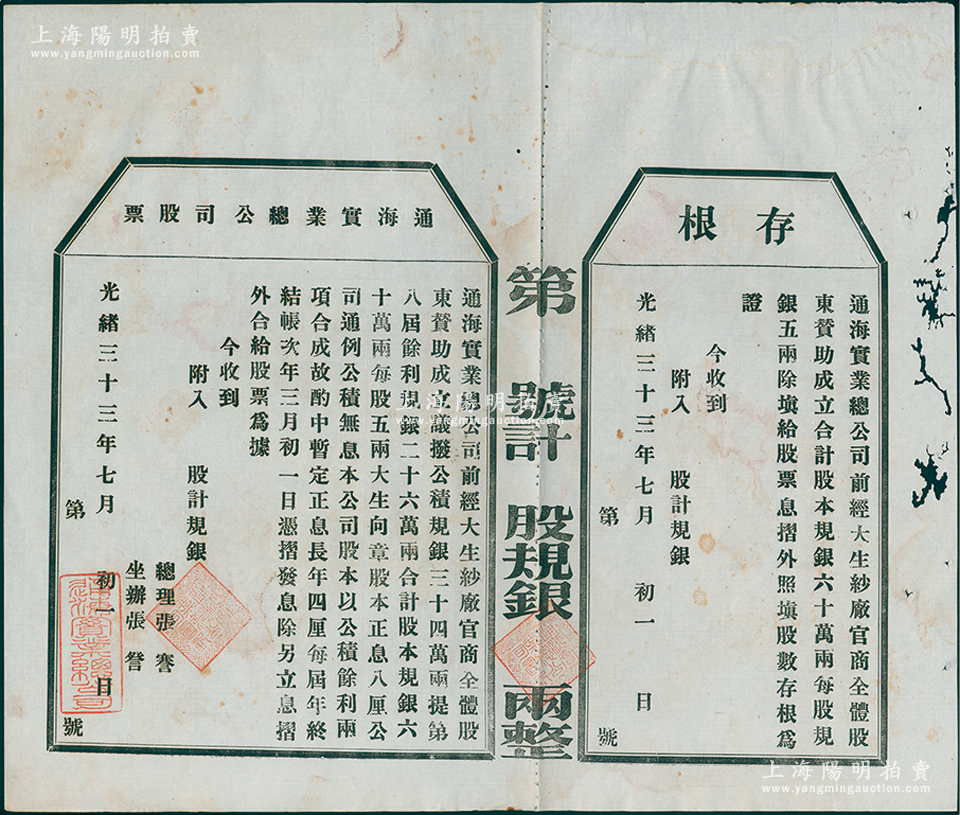 上海陽明拍賣
www.yangmingauction.com
存根
通海實業總公司前經大生紗廠官商全體股
東贊助成立合計股本規銀六十萬兩每股規
銀五兩除填給股票息摺外照填股數存根爲
證
今收到
附入 股計規銀
光緒三十三年七月 初一 日
第 號
第 號計 股規銀 兩整
通海實業總公司股票
通海實業總公司前經大生紗廠官商全體股
東贊助成立議撥公積規銀三十四萬兩提第
八屆餘利規銀二十六萬兩合計股本規銀六
十萬兩每股五兩大生向章股本正息八厘公
司通例公積無息本公司股本以公積餘利兩
項合成故酌中暫定正息長年四厘每屆年終
結帳次年三月初一日憑摺發息除另立息摺
外合給股票爲據
今收到
附入 股計規銀
總理張謇
坐辦張詧
光緒三十三年七月 初一 日
第 號
通海實業總公司
上海陽明拍賣
www.yangmingauction.com
上海陽明拍賣
www.yangmingauction.com